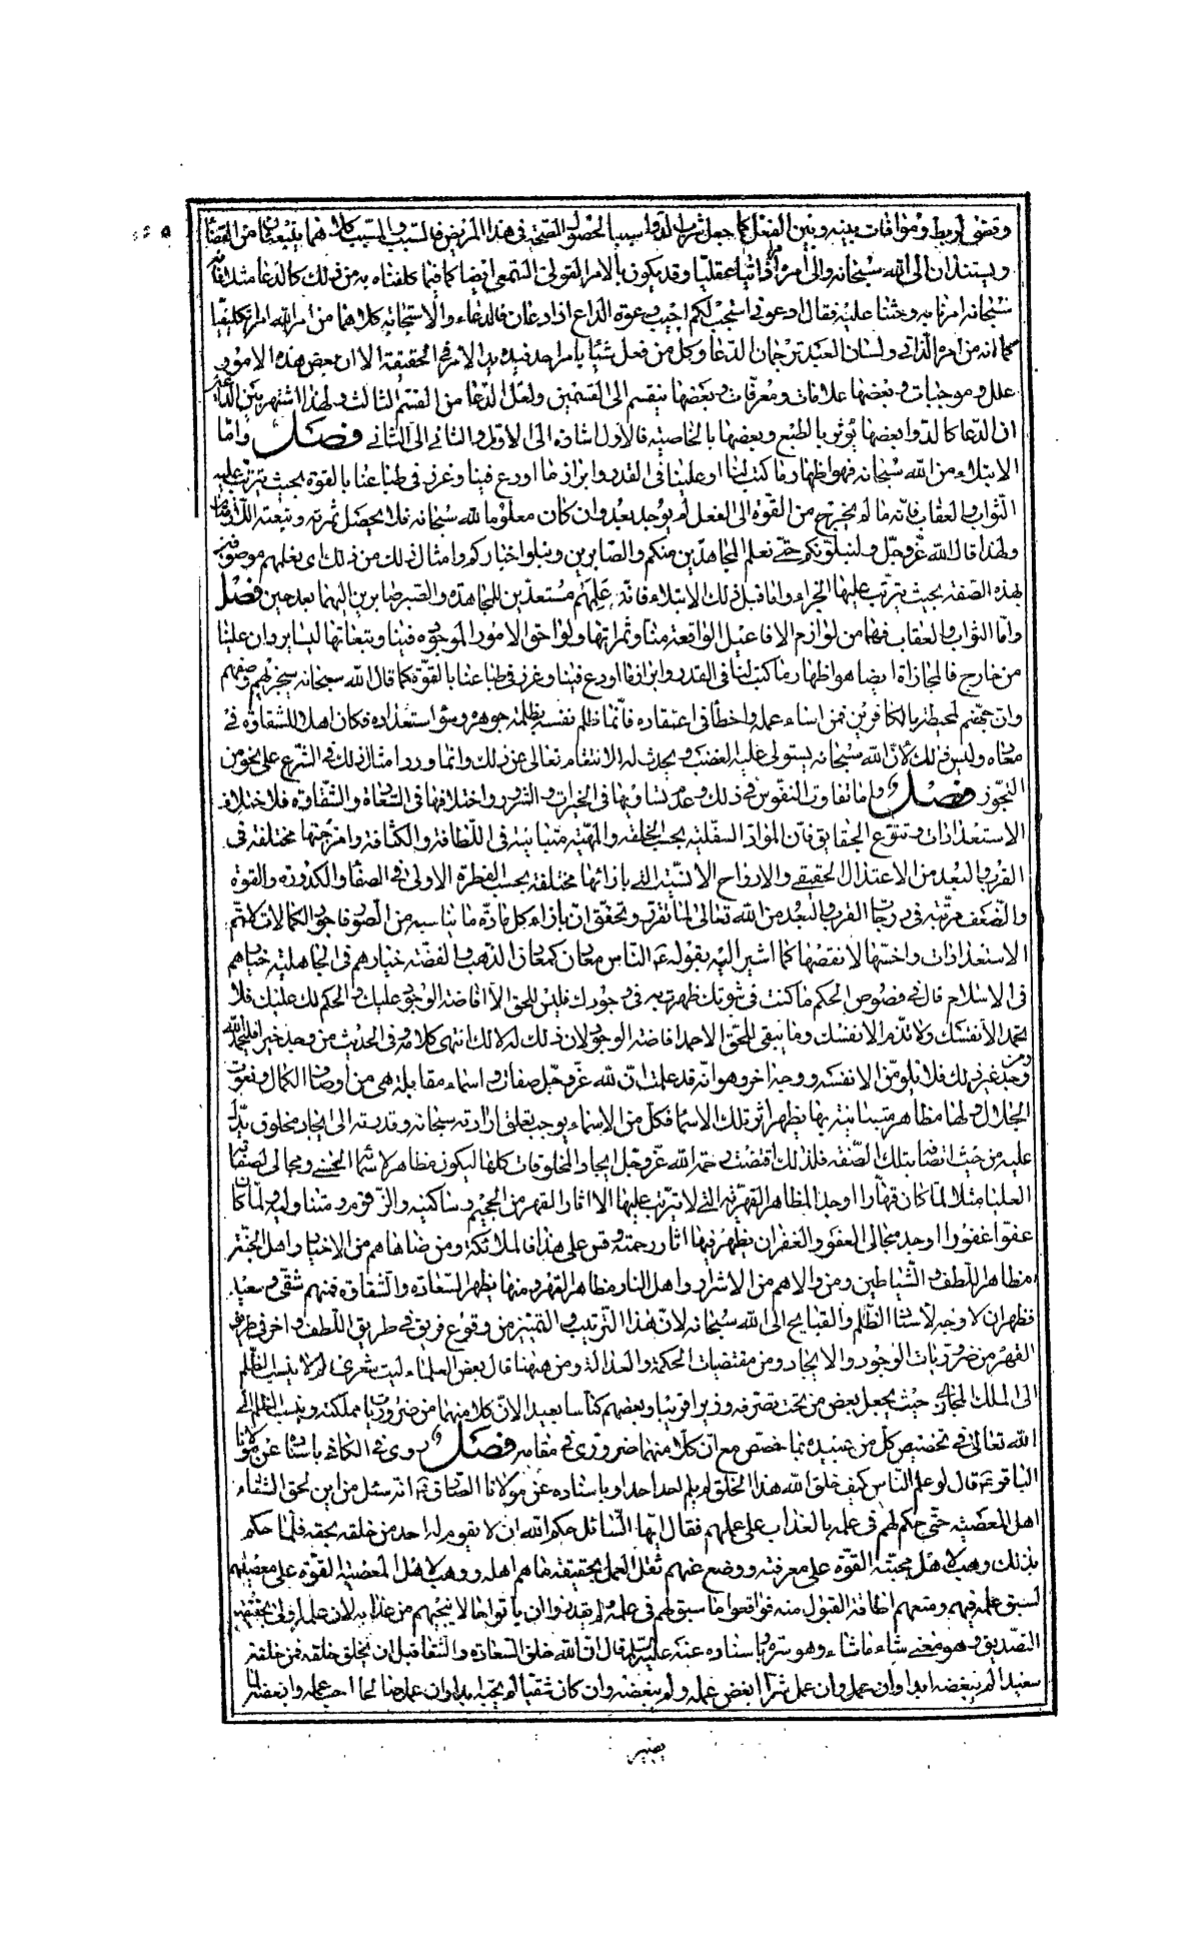 وقضى لربط وموافات بينه وبين الفعل كما جعل شرب الدواء سببا لحصول الصحة فى هذا المريض فالسبب والمسبب كلاهما ينبعثان من القضا
ويستندان الى الله سبحانه والى امره ذاتيا عقليا وقد يكون بالامر القولى السمعى ايضا كما فيما كلفناه به من ذلك كالدعا مثلا فانه
سبحانه امرنا به وحثنا عليه فقال ادعونى استجب لكم اجيب دعوة الداع اذا دعان فالدعاء والاستجابة كلاهما من امر الله امرا تكليفيا
كما انه من امره الذاتى ولسان العبد ترجمان الدعا وكل من فعل شيئا بامر احد فبيده بدا الامر فى الحقيقة الا ان بعض هذه الامور
علل وموجبات وبعضها علامات ومعرفات وبعضها ينقسم الى القسمين ولعل الدعا من القسم الثالث ولهذا اشتهر بين الداعين
ان الدعا كالدوا بعضها يوثر بالطبع وبعضها بالخاصية فالاول اشارة الى الاول والثانى الى الثانى فصل واما
الابتلاء من الله سبحانه فهو اظهار ما كتب لنا او علينا فى القدر وابراز ما اودع فينا وغرز فى طباعنا بالقوة بحيث يترتب عليه
الثواب والعقاب فانه ما لم يخرج من القوة الى الفعل لم يوجد بعد وان كان معلوما لله سبحانه فلا يحصل ثمرته وتبعته اللازمتان
ولهذا قال الله عز وجل ولنبلونكم حتى نعلم المجاهدين منكم والصابرين ونبلوا خباركم وامثال ذلك من ذلك اى يعلمهم موصوفين
بهذه الصفة بحيث يترتب عليها الجزاء واما قبل ذلك الابتلاء فانه عليهم مستعدين للمجاهدة والصبر صابرين اليهما بعد حين فصل
واما الثواب والعقاب فهما من لوازم الافاعيل الواقعة منا وثمراتها ولواحق الامور الموجودة فينا وتبعاتها ليسا يردان علينا
من خارج فالمجازاة ايضا هو اظهار ما كتب لنا فى القدر وابراز ما اودع فينا وغرز فى طباعنا بالقوة كما قال الله سبحانه سيجزيهم وصفهم
وان جهنم لمحيطة بالكافرين فمن اساء عمله واخطأ فى اعتقاده فانما ظلم نفسه بظلمة جوهره وسوء استعداده فكان اهلا للشقاوة فى
معاده وليس ذلك لان الله سبحانه يستولى عليه الغضب ويحدث له الانتقام تعالى عن ذلك وانما ورد امثال ذلك فى الشرع على نحو من
التجوز فصل واما تفاوت النفوس فى ذلك وعدم تساويها فى الخيرات والشرور واختلافها فى السعادة والشقاوة فلاختلاف
الاستعدادات وتنوع الحقايق فان المواد السفلية بحسب الخلقة والمهية متباينة فى اللطافة والكثافة وامزجتها مختلفة فى
القرب والبعد من الاعتدال الحقيقى والارواح الانسية التى بازائها مختلفة بحسب الفطرة الاولى فى الصفا والكدورة والقوة
والضعف مرتبة فى درجات القرب والبعد من الله تعالى لما تقرر وتحقق ان بازاء كل مادة ما يناسبه من الصور فاجود الكمالات لاتم
الاستعدادات واخسها لانقصها كما اشير اليه بقوله ع الناس معادن كمعادن الذهب والفضة خيارهم فى الجاهلية خيارهم
فى الاسلام قال فى فصوص الحكم ما كنت فى ثبوتك ظهرت به فى وجودك فليس للحق الا افاضة الوجود عليك والحكم لك عليك فلا
تحمد الا نفسك ولا تذم الا نفسك وما يبقى للحق الا حمد افاضة الوجود لان ذلك له لا لك انتهى كلامه وفى الحديث من وجد خيرا فليحمد الله
ومن وجد غير ذلك فلا يلومن الا نفسه ووجه اخر وهو انه قد علمت ان لله عز وجل صفات واسماء مقابلة هى من اوصاف الكمال ونعوت
الجلال ولها مظاهر متباينة بها يظهر اثر تلك الاسما فكل من الاسماء يوجب تعلق ارادته سبحانه وقدرته الى ايجاد مخلوق يدل
عليه من حيث اتصافه بتلك الصفة فلذلك اقتضت رحمة الله عز وجل ايجاد المخلوقات كلها ليكون مظاهر لاسمائه الحسنى ومجالى لصفاته
العليا مثلا لما كان قهارا اوجد المظاهر القهرية التى لا يترتب عليها الا اثار القهر من الجحيم وساكنيه والزقوم ومتناوليه ولما كان
عفوا غفورا اوجد مجالى العفو والغفران يظهر فيها اثار رحمته وقس على هذا فالملائكة ومن ضاهاهم من الاخيار واهل الجنة
مظاهر اللطف والشياطين ومن والاهم من الاشرار واهل النار مظاهر القهر ومنها يظهر السعادة والشقاوة فمنهم شقى وسعيد
فظهر ان لا وجه لاسناد الظلم والقبايح الى الله سبحانه لان هذا الترتيب والتميز من وقوع فريق فى طريق اللطف واخر فى طريق
القهر من ضروريات الوجود والايجاد ومن مقتضيات الحكمة والعدالة ومن هيهنا قال بعض العلماء ليت شعرى لم لا ينسب الظلم
الى الملك المجازى حيث يجعل بعض من تحت تصرفه وزيرا قريبا وبعضهم كناسا بعيدا لان كلا منهما من ضروريات مملكته وينسب الظلم الى
الله تعالى فى تخصيص كل من عبيده بما خصص مع ان كلا منهما ضرورى فى مقامه فصل روى فى الكافى باسناده عن مولانا
الباقر ع قال لو علم الناس كيف خلق الله هذا الخلق لم يلم احد احدا وباسناده عن مولانا الصادق ع انه سئل من اين لحق الشقاء
اهل المعصية حتى حكم لهم فى علمه بالعذاب على عملهم فقال ايها السائل حكم الله ان لا يقوم له احد من خلقه بحقه فلما حكم
بذلك وهب لاهل محبته القوة على معرفته ووضع عنهم ثقل العمل بحقيقة ما هم اهله ووهب لاهل المعصية القوة على معصيتهم
لسبق علمه فيهم ومنعهم اطاقة القبول منه فواقعوا ما سبق لهم فى علمه ولم يقدروا ان ياتوا حالا ينجيهم من عذابه لان علمه اولى بحقيقة
التصديق وهو معنى شاء ما شاء وهو سره وباسناده عنه عليه السلم قال ان الله خلق السعادة والشقا قبل ان يخلق خلقه فمن خلقه
سعيدا لم يبغضه ابدا وان عمل وان عمل شرا ابغض عمله ولم يبغضه وان كان شقيا لم يحبه ابدا وان عمل صالحا احب عمله وابغضه لما
يصير